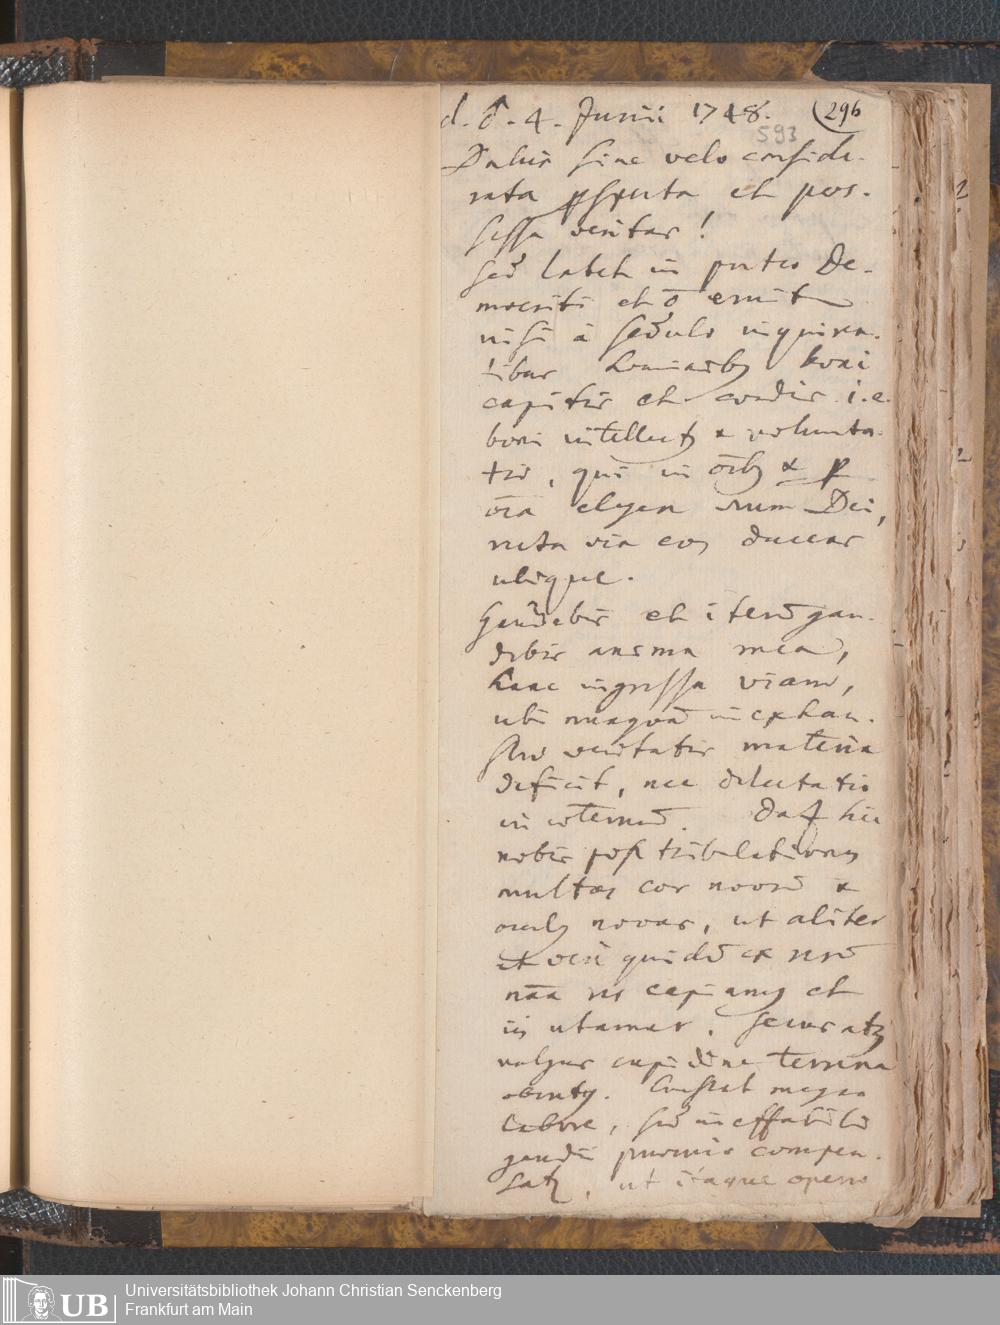 d. ♂. 4. Junii 1748. (296
593
Dulcis sine velo conside-
rata perspecta et pos-
sessa veritas!
sed latet in puteo De-
mocriti et õ eruit
nisi à sedulo inquiren-
tibus hominibꝫ boni
capitis et cordis i.e.
boni intellectꝫ & volunta-
tis, qui in oĩbꝫ & p
oĩa
Dei,
via eos ducens
ubique.
Gaudebis et iterũ gau-
debis anima mea,
hanc ingressa viam,
ubi nunquã inexhau-
sta veritatis materia
deficit, nec delectatio
in æternũ. Das hic
nobis post tribulationes
multas cor novũ &
oculꝫ novos, ut aliter
et quidẽ ex rerũ
nãa res capiamꝫ et
iis utamur. Secus
vulgus cupidine terrena
Constat magno
labore, sed ineffabilis
gaudii præmio compen-
satꝫ, ut itaque
Universitätsbibliothek Johann Christian Senckenberg
Frankfurt am Main
UB